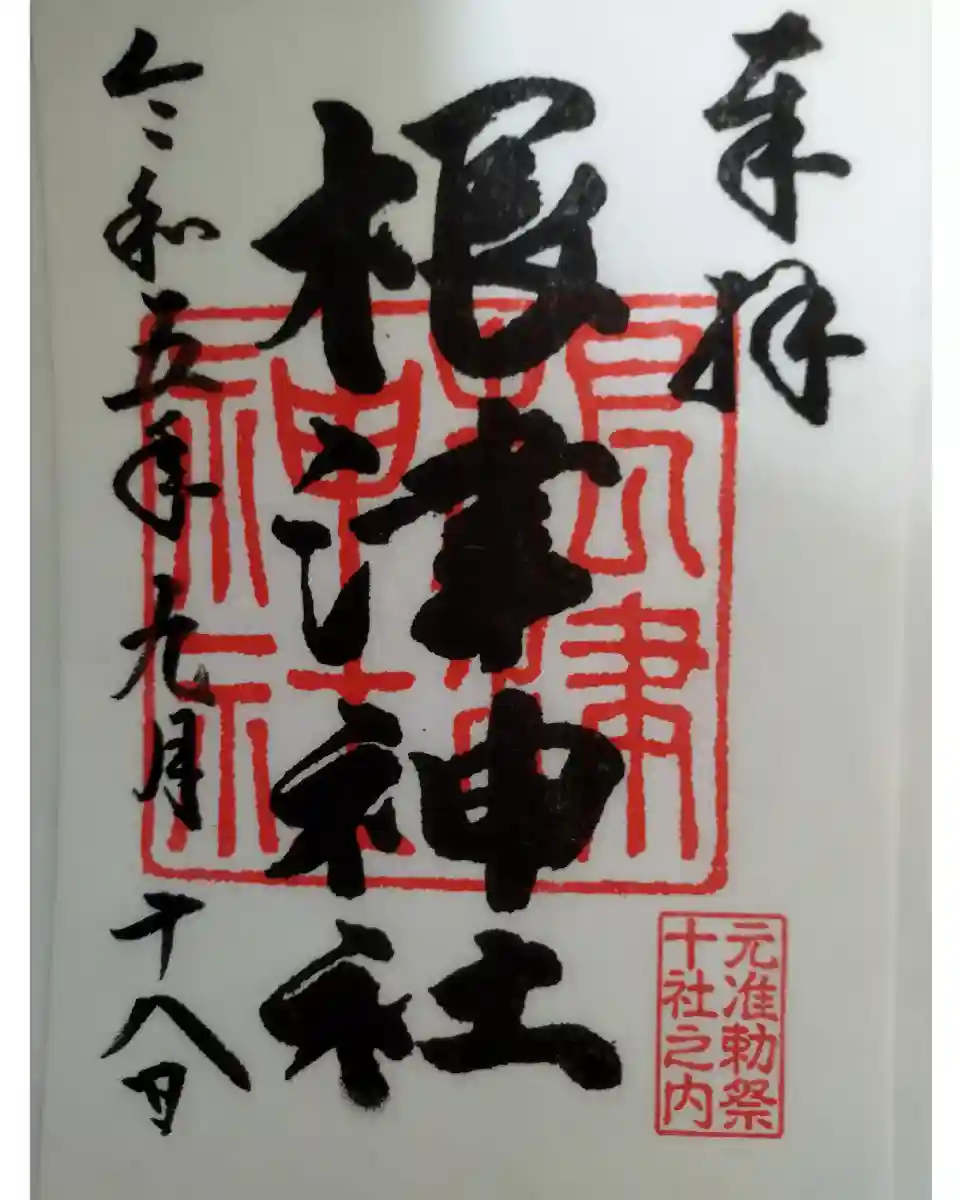 奉拝
根津神社
令和五年九月十八日
根津
神社
元准勅祭
十社之内